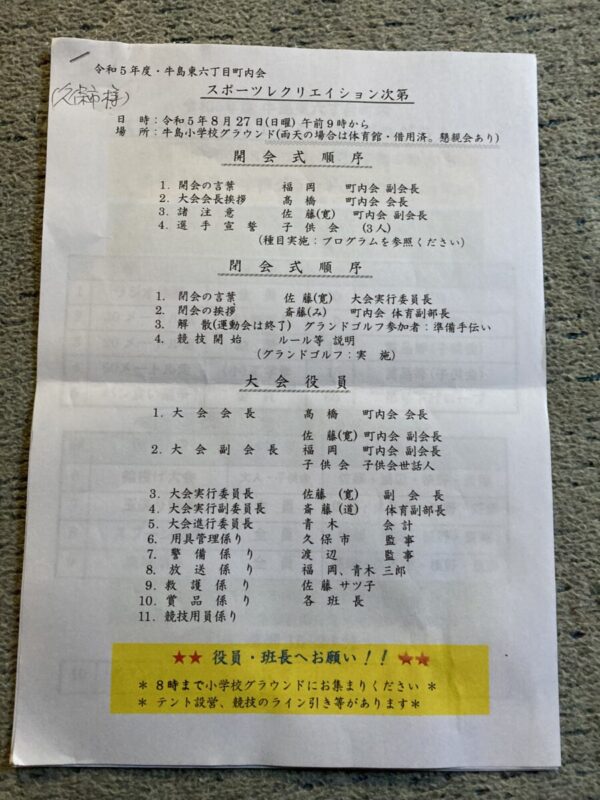 令和5年度・牛島東六丁目町内会
(久保市様)
スポーツレクリエイション次第
日 時：令和5年8月27日(日曜) 午前9時から
場 所：牛島小学校グラウンド(雨天の場合は体育館・借用済。懇親会あり)
開 会 式 順 序
1. 開会の言葉 福 岡 町内会 副会長
2. 大会会長挨拶 髙 橋 町内会 会長
3. 諸 注 意 佐 藤(寛) 町内会 副会長
4. 選 手 宣 誓 子 供 会 (3人)
(種目実施：プログラムを参照ください)
閉 会 式 順 序
1. 閉会の言葉 佐 藤(寛) 大会実行委員長
2. 閉会の挨拶 斎藤(み) 町内会 体育副部長
3. 解 散(運動会は終了) グランドゴルフ参加者：準備手伝い
4. 競 技 開 始 ルール等 説明
(グランドゴルフ：実 施)
大 会 役 員
1. 大 会 会 長 髙 橋 町内会 会長
佐 藤(寛) 町内会 副会長
2. 大 会 副 会 長 福 岡 町内会 副会長
子 供 会 子供会世話人
3. 大会実行委員長 佐藤 (寛) 副 会 長
4. 大会実行副委員長 斎藤 (道) 体育副部長
5. 大会進行委員長 青 木 会 計
6. 用具管理係り 久 保 市 監 事
7. 警 備 係 り 渡 辺 監 事
8. 放 送 係 り 福 岡、青木 三郎
9. 救 護 係 り 佐 藤 サツ子
10. 賞 品 係 り 各 班 長
11. 競技用員係り
★★ 役員・班長へお願い！！ ★★
＊ 8時まで小学校グラウンドにお集まりください ＊
＊ テント設営、競技のライン引き等があります＊